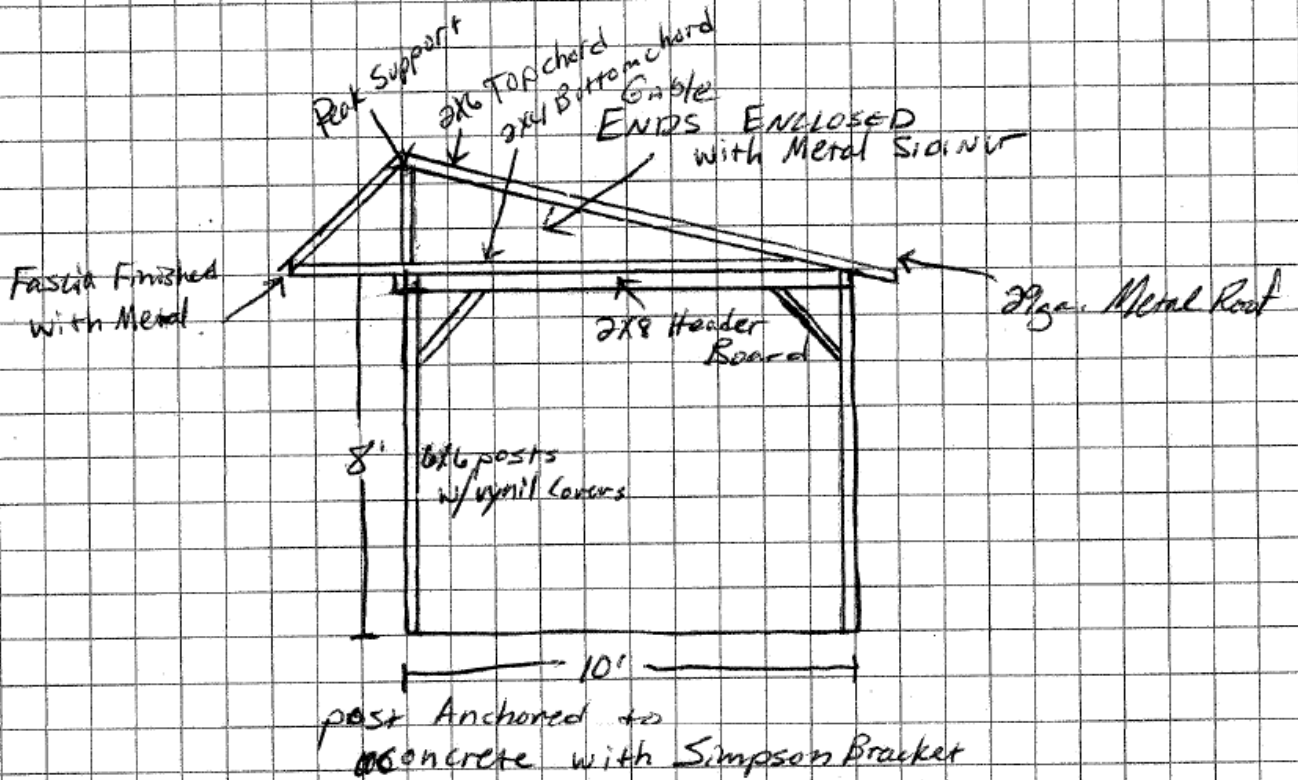 Peak Support
2x6 Top chord
2x4 Bottom chord
Gable
ENDS ENCLOSED
with Metal SIDING
Fascia Finished
with Metal
29ga. Metal Roof
2x8 Header
Board
8'
6x6 posts
w/vynil Covers
10'
post Anchored to
concrete with Simpson Bracket